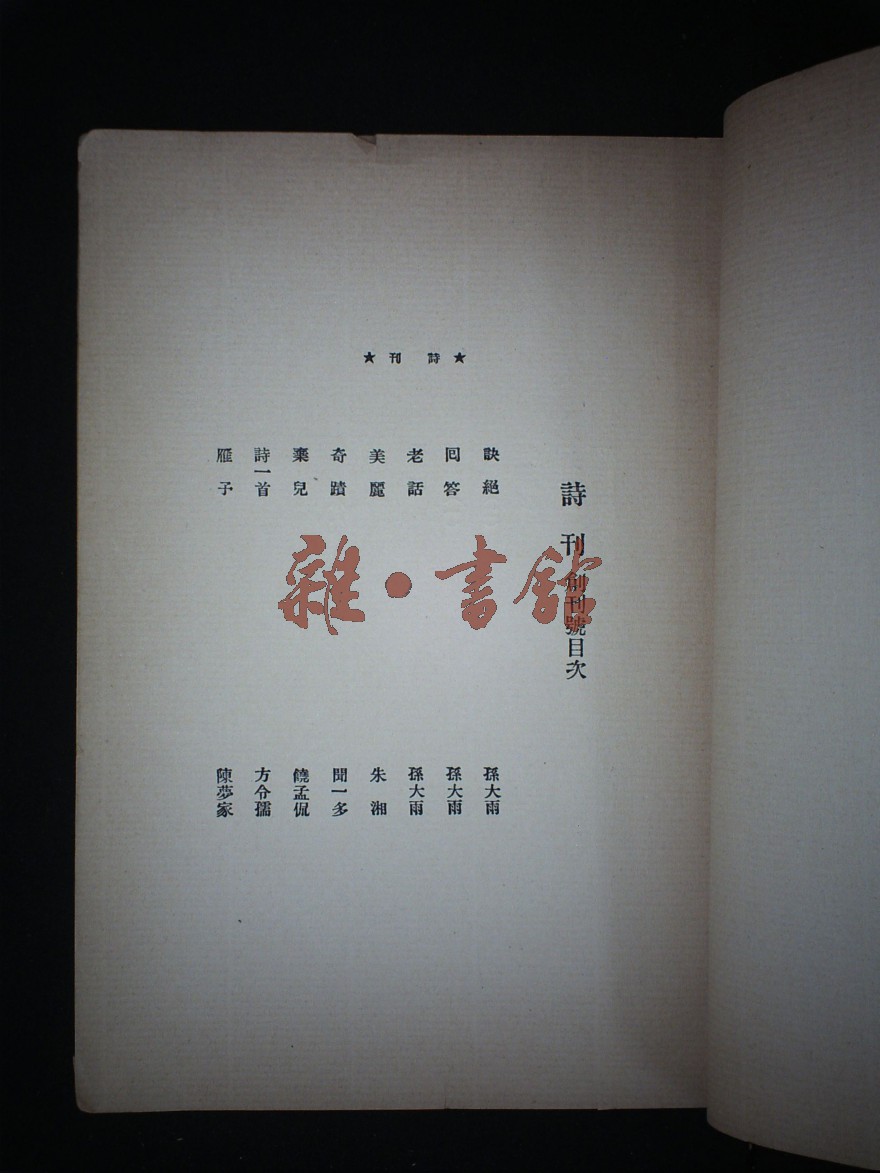 ★詩刊★
詩刊創刊號目次
訣絕 孫大雨
回答 孫大雨
老話 孫大雨
美麗 朱湘
奇蹟 聞一多
棄兒 饒孟侃
詩一首 方令孺
雁子 陳夢家
雜·書館